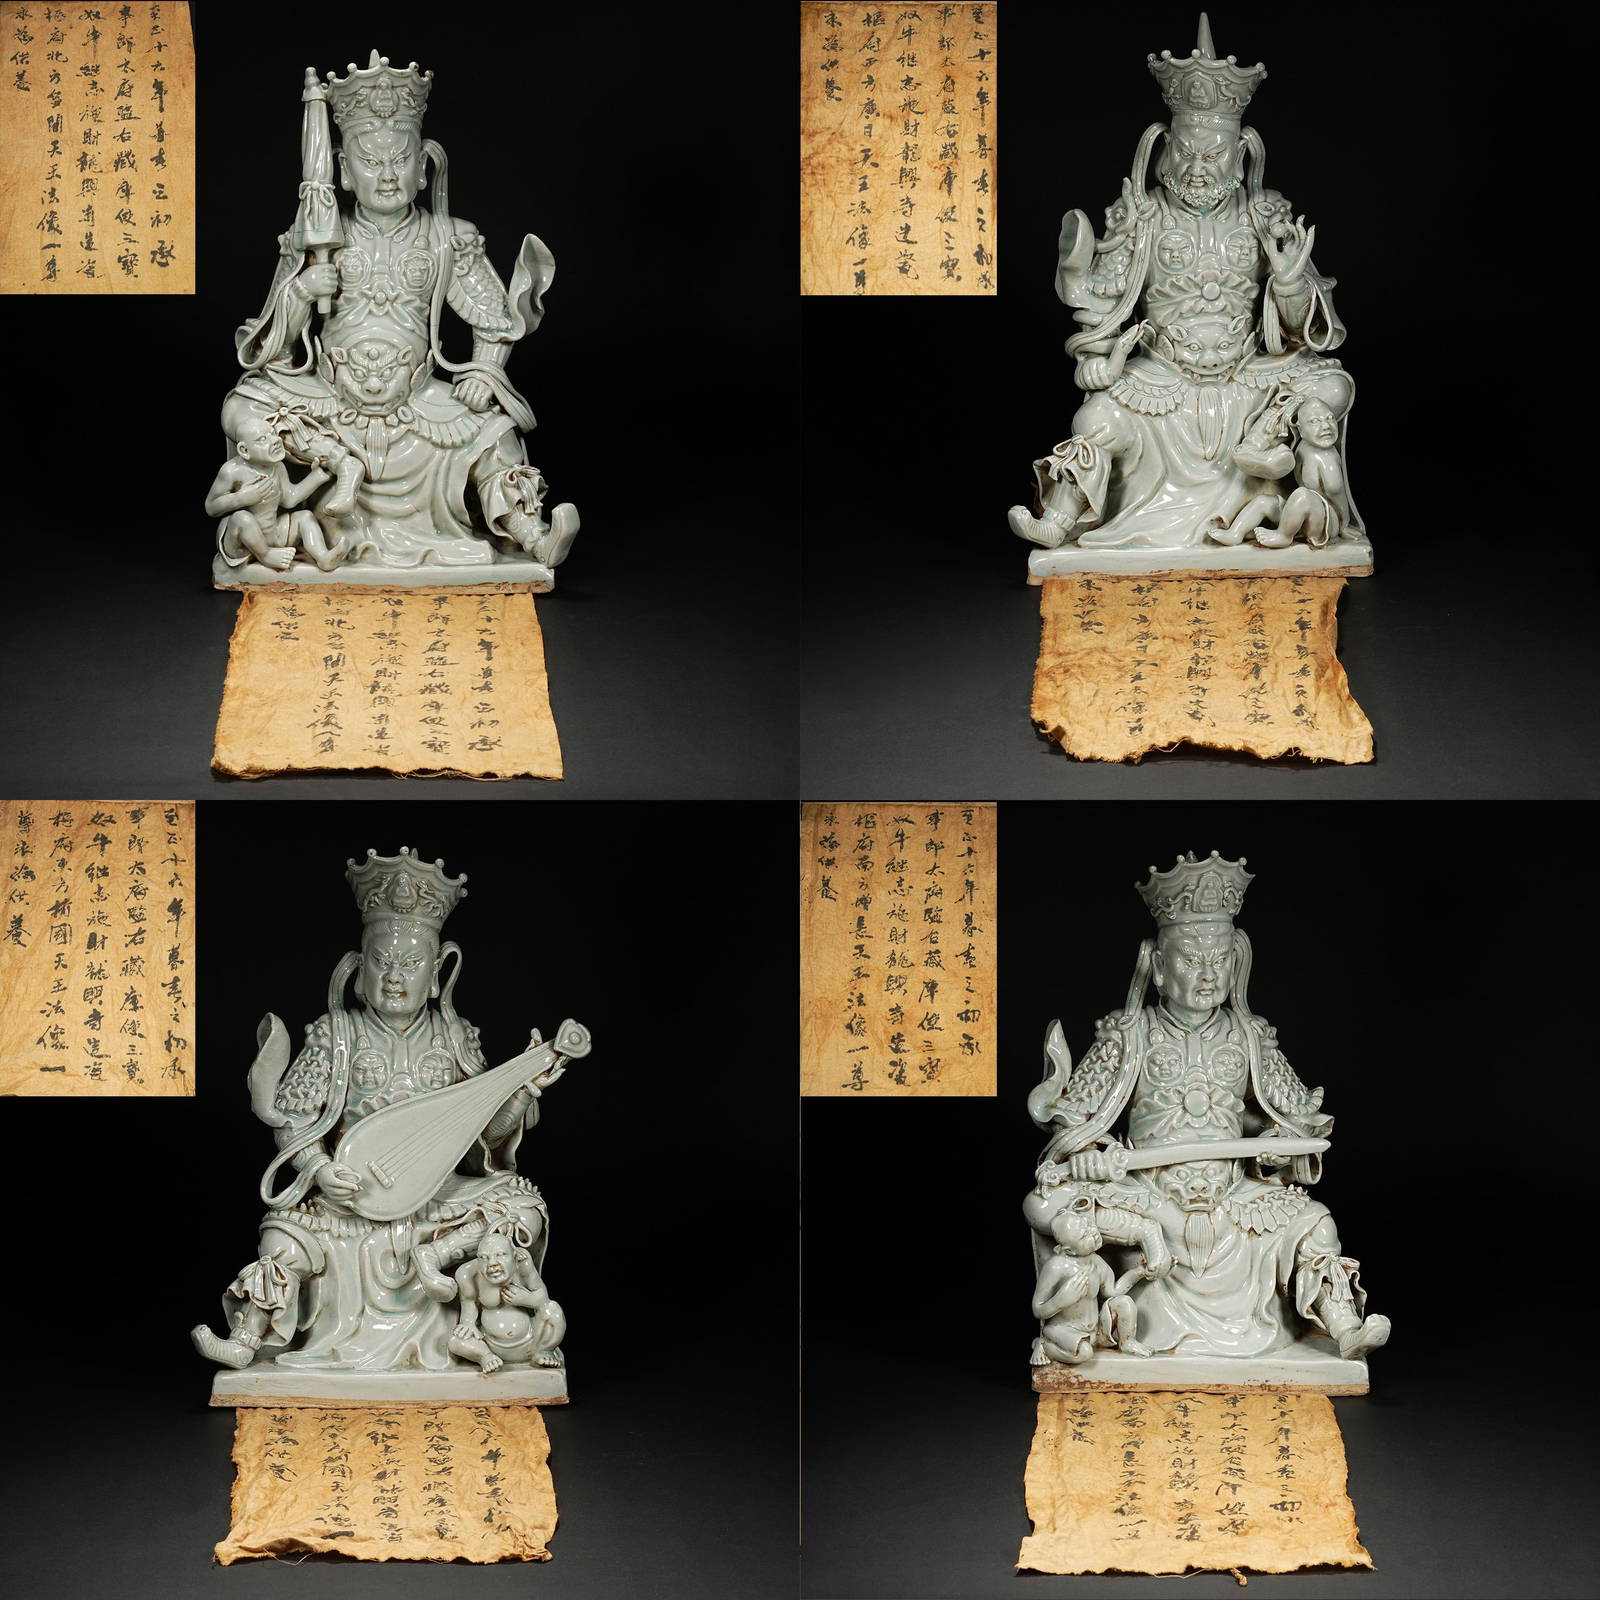 至正十六年暮春之初承
事郎太府監右藏庫使三寶
奴牛繼志施財龍興寺造瓷
樞府北方多聞天王法像一尊
永為供養
至正十六年暮春之初承
事郎太府監右藏庫使三寶
奴牛繼志施財龍興寺造瓷
樞府西方廣目天王法像一尊
永為供養
至正十六年暮春之初承
事郎太府監右藏庫使三寶
奴牛繼志施財龍興寺造瓷
樞府東方持國天王法像一
尊永為供養
至正十六年暮春之初承
事郎太府監右藏庫使三寶
奴牛繼志施財龍興寺造瓷
樞府南方增長天王法像一尊
永為供養